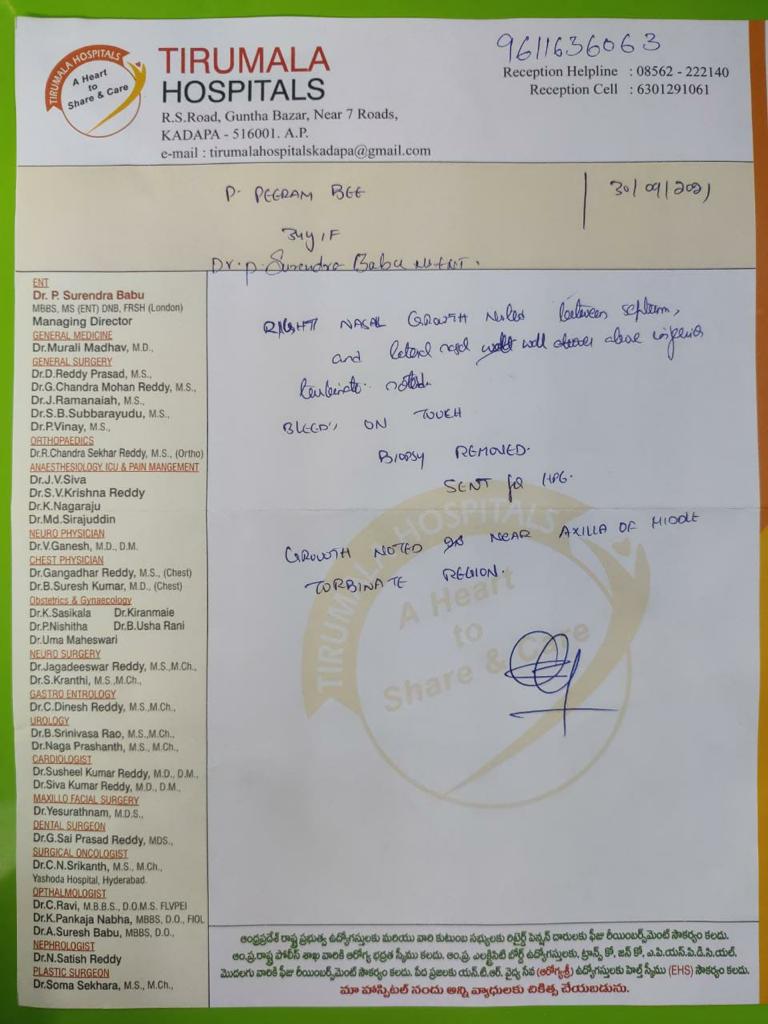 TIRUMALA HOSPITALS
A Heart
to
Share & Care
TIRUMALA
HOSPITALS
R.S.Road, Guntha Bazar, Near 7 Roads,
KADAPA - 516001. A.P.
e-mail : tirumalahospitalskadapa@gmail.com
9611636063
Reception Helpline : 08562 - 222140
Reception Cell : 6301291061
P. PEERAM BEE
30/09/2021
34y/F
Dr. P. Surendra Babu
ENT
Dr. P. Surendra Babu
MBBS, MS (ENT) DNB, FRSH (London)
Managing Director
GENERAL MEDICINE
Dr.Murali Madhav, M.D.,
GENERAL SURGERY
Dr.D.Reddy Prasad, M.S.,
Dr.G.Chandra Mohan Reddy, M.S.,
Dr.J.Ramanaiah, M.S.,
Dr.S.B.Subbarayudu, M.S.,
Dr.P.Vinay, M.S.,
ORTHOPAEDICS
Dr.R.Chandra Sekhar Reddy, M.S., (Ortho)
ANAESTHESIOLOGY, ICU & PAIN MANGEMENT
Dr.J.V.Siva
Dr.S.V.Krishna Reddy
Dr.K.Nagaraju
Dr.Md.Sirajuddin
NEURO PHYSICIAN
Dr.V.Ganesh, M.D., D.M.
CHEST PHYSICIAN
Dr.Gangadhar Reddy, M.S., (Chest)
Dr.B.Suresh Kumar, M.D., (Chest)
Obstetrics & Gynaecology
Dr.K.Sasikala Dr.Kiranmaie
Dr.P.Nishitha Dr.B.Usha Rani
Dr.Uma Maheswari
NEURO SURGERY
Dr.Jagadeeswar Reddy, M.S.,M.Ch.,
Dr.S.Kranthi, M.S.,M.Ch.,
GASTRO ENTROLOGY
Dr.C.Dinesh Reddy, M.S.,M.Ch.,
UROLOGY
Dr.B.Srinivasa Rao, M.S.,M.Ch.,
Dr.Naga Prashanth, M.S., M.Ch.,
CARDIOLOGIST
Dr.Susheel Kumar Reddy, M.D., D.M.,
Dr.Siva Kumar Reddy, M.D., D.M.,
MAXILLO FACIAL SURGERY
Dr.Yesurathnam, M.D.S.,
DENTAL SURGEON
Dr.G.Sai Prasad Reddy, MDS.,
SURGICAL ONCOLOGIST
Dr.C.N.Srikanth, M.S., M.Ch.,
Yashoda Hospital, Hyderabad.
OPTHALMOLOGIST
Dr.C.Ravi, M.B.B.S., D.O.M.S. FLVPEI
Dr.K.Pankaja Nabha, MBBS, D.O., FIOL
Dr.A.Suresh Babu, MBBS, D.O.,
NEPHROLOGIST
Dr.N.Satish Reddy
PLASTIC SURGEON
Dr.Soma Sekhara, M.S., M.Ch.,
RIGHT NASAL GROWTH Noted between septum,
and lateral nasal wall above inferior
turbinate noted.
BLEEDS ON TOUCH
BIOPSY REMOVED.
SENT for HPE.
GROWTH NOTED NEAR AXILLA OF MIDDLE
TORBINATE REGION.
TIRUMALA HOSPITALS
A Heart
to
Share & Care
ఆంధ్రప్రదేశ్ రాష్ట్ర ప్రభుత్వ ఉద్యోగస్తులకు మరియు వారి కుటుంబ సభ్యులకు రిటైర్డ్ పెన్షన్ దారులకు ఫీజు రీయింబర్స్‌మెంట్ సౌకర్యం కలదు.
ఆం.ప్ర.రాష్ట్ర పోలీస్ శాఖ వారికి ఆరోగ్య భద్రత స్కీము కలదు. ఆం.ప్ర. ఎలక్ట్రిసిటి బోర్డ్ ఉద్యోగస్తులకు, ట్రాన్స్ కో, జన్ కో, ఎ.పి.యస్.పి.డి.సి.యల్.
మొదలగు వారికి ఫీజు రీయింబర్స్‌మెంట్ సౌకర్యం కలదు. పేద ప్రజలకు యన్.టి.ఆర్. వైద్య సేవ (ఆరోగ్యశ్రీ) ఉద్యోగస్తులకు హెల్త్ స్కీము (EHS) సౌకర్యం కలదు.
మా హాస్పిటల్ నందు అన్ని వ్యాధులకు చికిత్స చేయబడును.